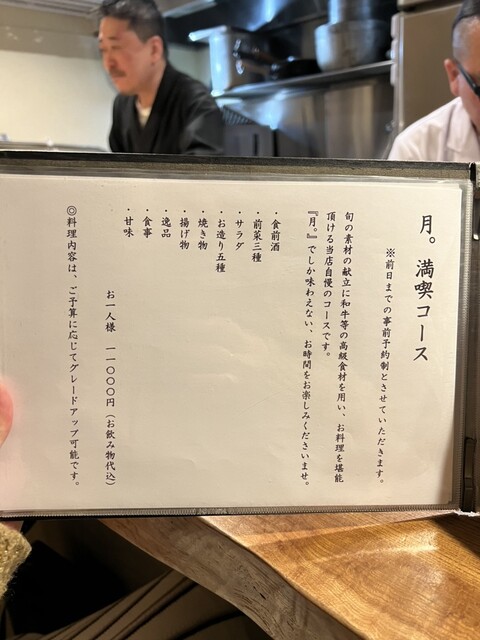 月。満喫コース
※前日までの事前予約制とさせていただきます。
旬の素材の献立に和牛等の高級食材を用い、お料理を堪能
頂ける当店自慢のコースです。
『月。』でしか味わえない、お時間をお楽しみくださいませ。
・食前酒
・前菜三種
・サラダ
・お造り五種
・焼き物
・揚げ物
・逸品
・食事
・甘味
お一人様 一一〇〇〇円（お飲み物代込）
◎料理内容は、ご予算に応じてグレードアップ可能です。